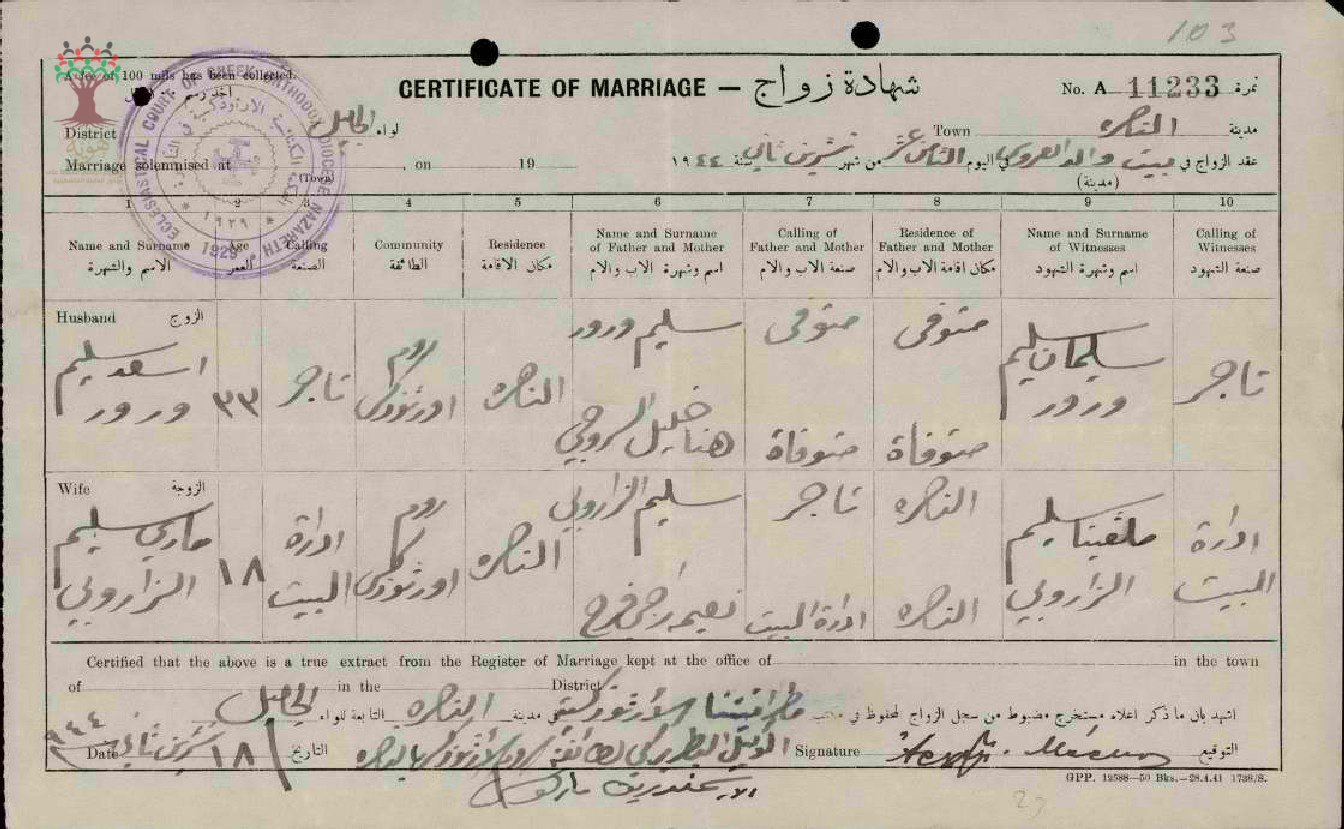 103
A fee of 100 mils has been collected.
CERTIFICATE OF MARRIAGE — شهادة زواج
No. A 11233 نمرة
District لواء الجليل
Town الناصره مدينة
Marriage solemnised at , on 19
(Town)
عقد الزواج في بيت والد العروس في اليوم الثامن عشر من شهر تشرين ثاني سنة ١٩٤٤
(مدينة)
ECCLESIASTICAL COURT OF GREEK ORTHODOX DIOCESE NAZARETH
١٩٢٩
1929
1 2 3 4 5 6 7 8 9 10
Name and Surname
الاسم والشهرة
Age
العمر
Calling
الصنعة
Community
الطائفة
Residence
مكان الاقامة
Name and Surname
of Father and Mother
اسم وشهرة الاب والام
Calling of
Father and Mother
صنعة الاب والام
Residence of
Father and Mother
مكان اقامة الاب والام
Name and Surname
of Witnesses
اسم وشهرة الشهود
Calling of
Witnesses
صنعة الشهود
Husband الزوج
اسعد سليم
ورور
٣٣
تاجر
روم
اورثوذكس
الناصره
سليم ورور
هنا خليل
متوفى
متوفاة
متوفى
متوفاة
سليمان سليم
ورور
تاجر
Wife الزوجة
ماري سليم
الزاروبي
١٨
ادارة
البيت
روم
اورثوذكس
الناصره
سليم الزاروبي
نعيمه فرح
تاجر
ادارة البيت
الناصره
الناصره
سليم
الزاروبي
ادارة
البيت
Certified that the above is a true extract from the Register of Marriage kept at the office of in the town
of in the District
اشهد بان ما ذكر اعلاه مستخرج مضبوط من سجل الزواج المحفوظ في مكتب في مدينة الناصره التابعة للواء الجليل
Date ١٨ تشرين ثاني ٩٤٤ التاريخ
Signature التوقيع
GPP. 12588—50 Bks.—28.4.41 1738/S.